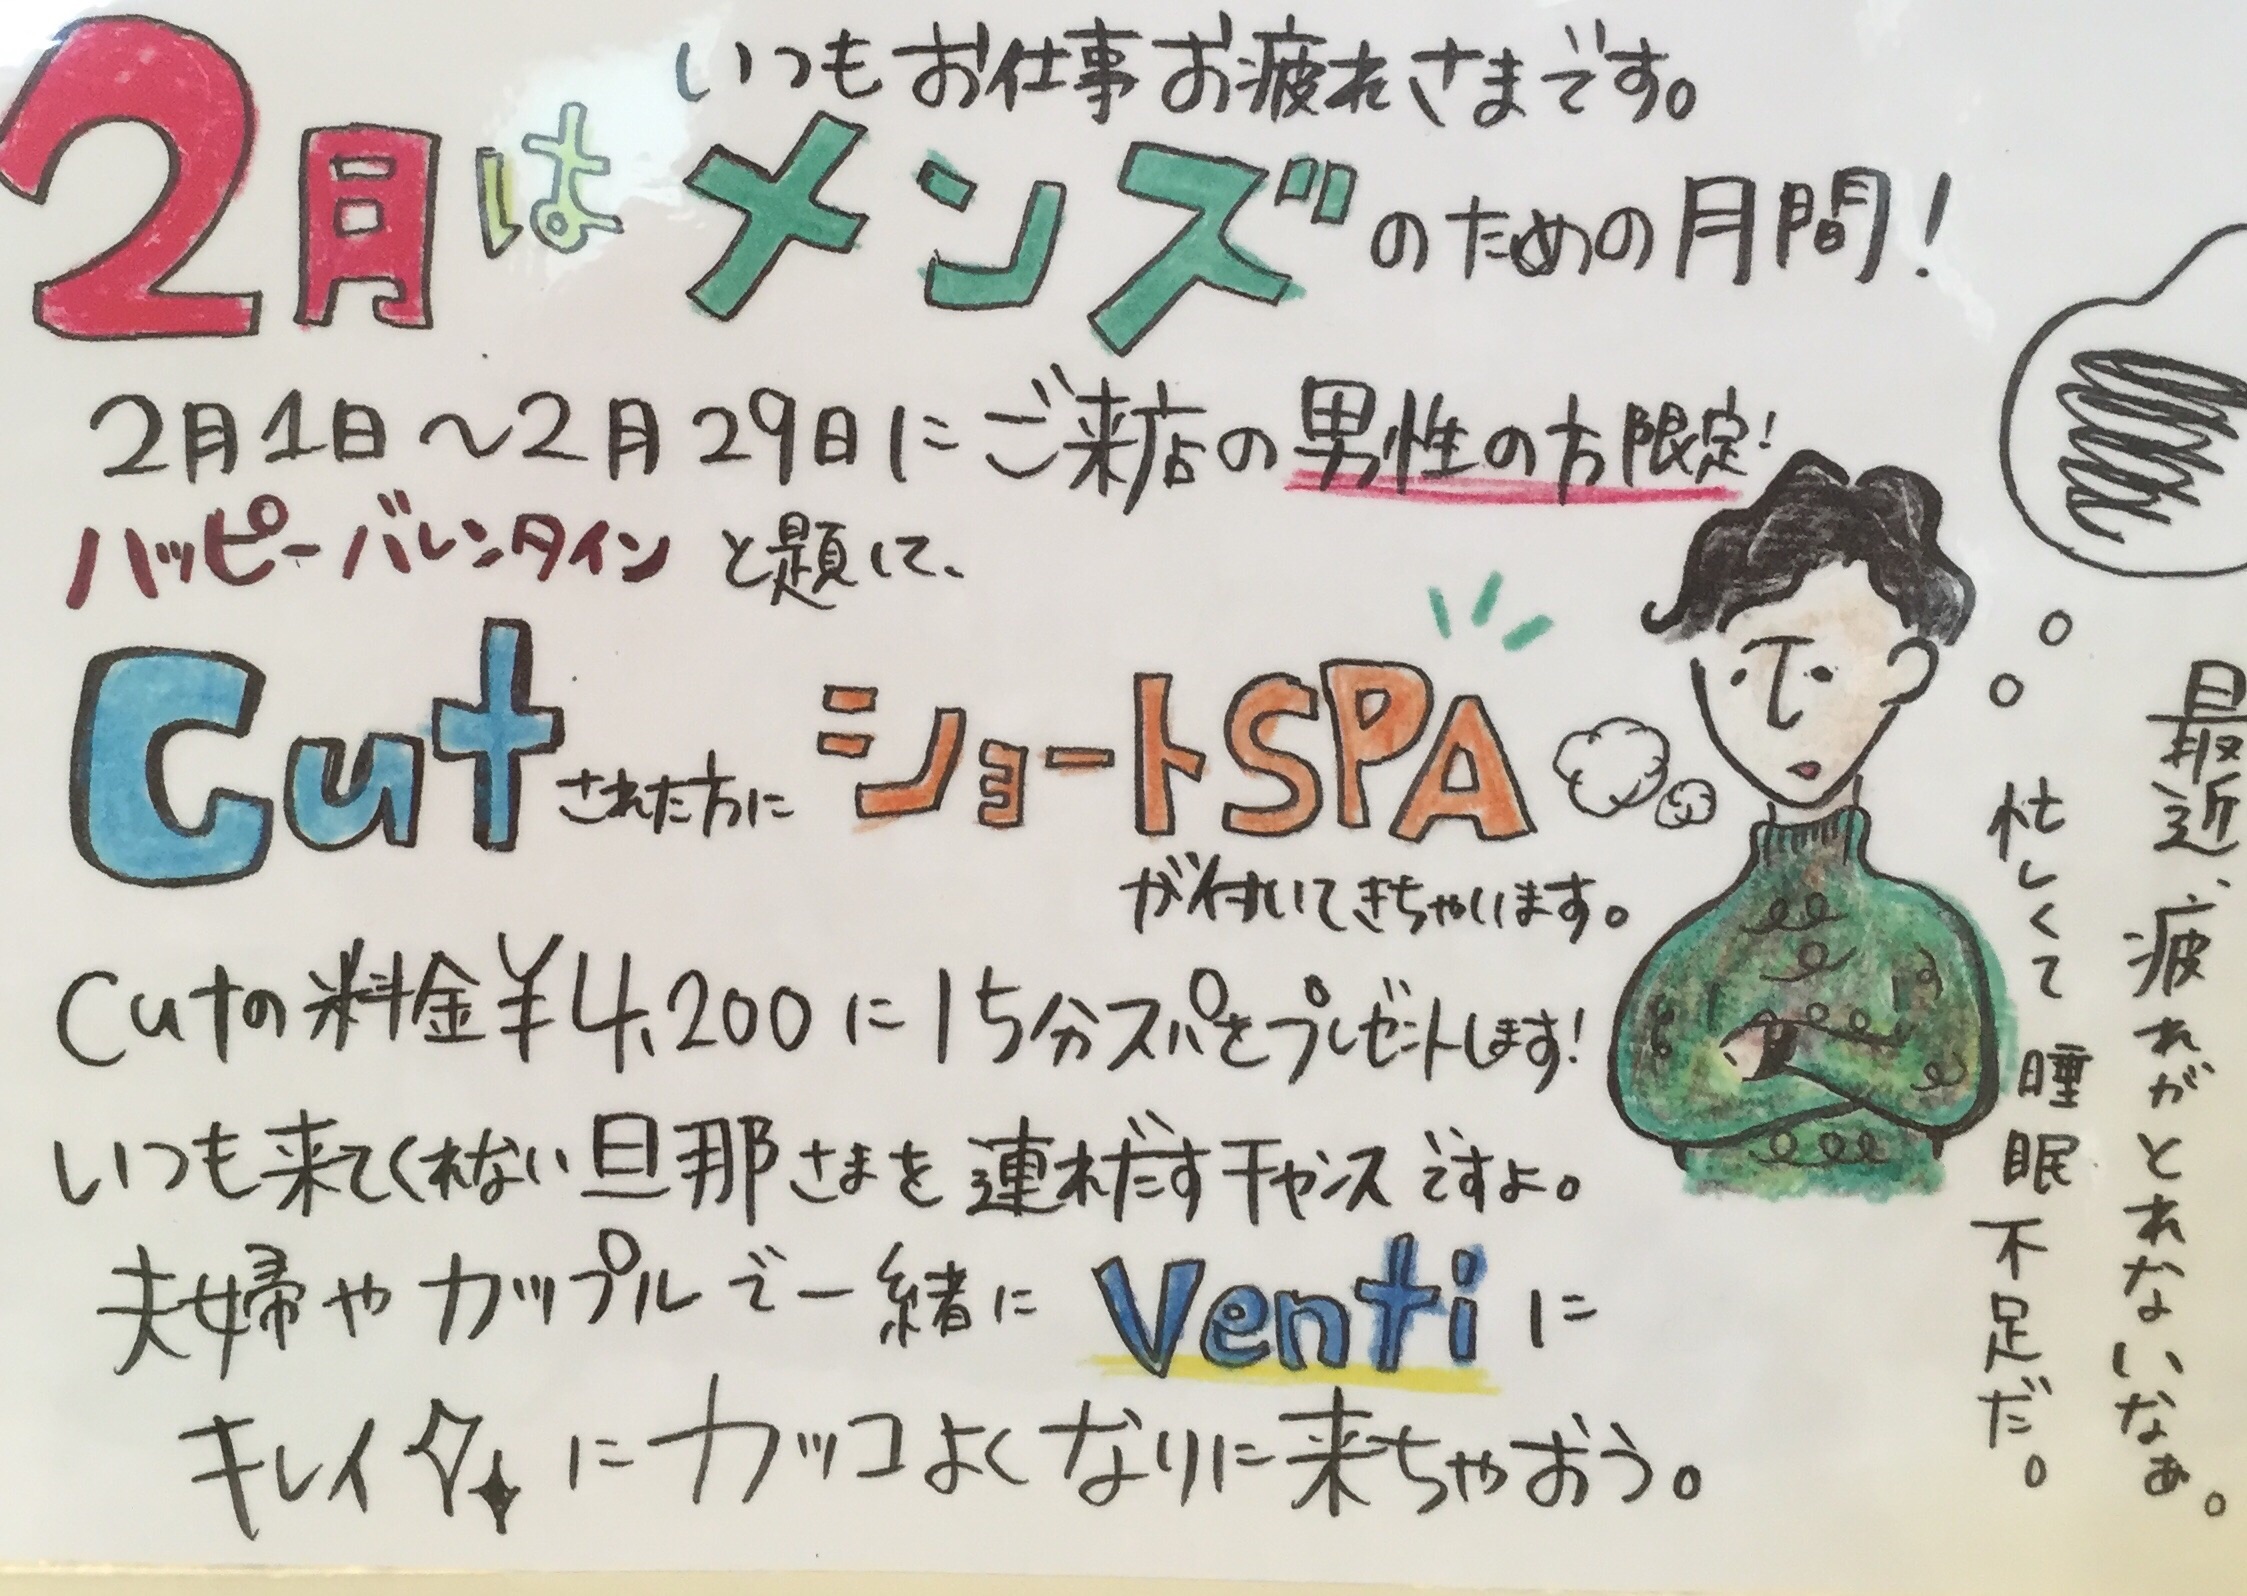 いつもお仕事お疲れさまです。
2月はメンズのための月間!
2月1日〜2月29日にご来店の男性の方限定!
ハッピーバレンタインと題して、
Cutされた方にショートSPA
が付いてきちゃいます。
Cutの料金¥4,200に15分スパをプレゼントします!
いつも来てくれない旦那さまを連れだすチャンスですよ。
夫婦やカップルで一緒にVentiに
キレイにカッコよくなりに来ちゃおう。
最近、疲れがとれないなぁ。
忙しくて睡眠不足だ。